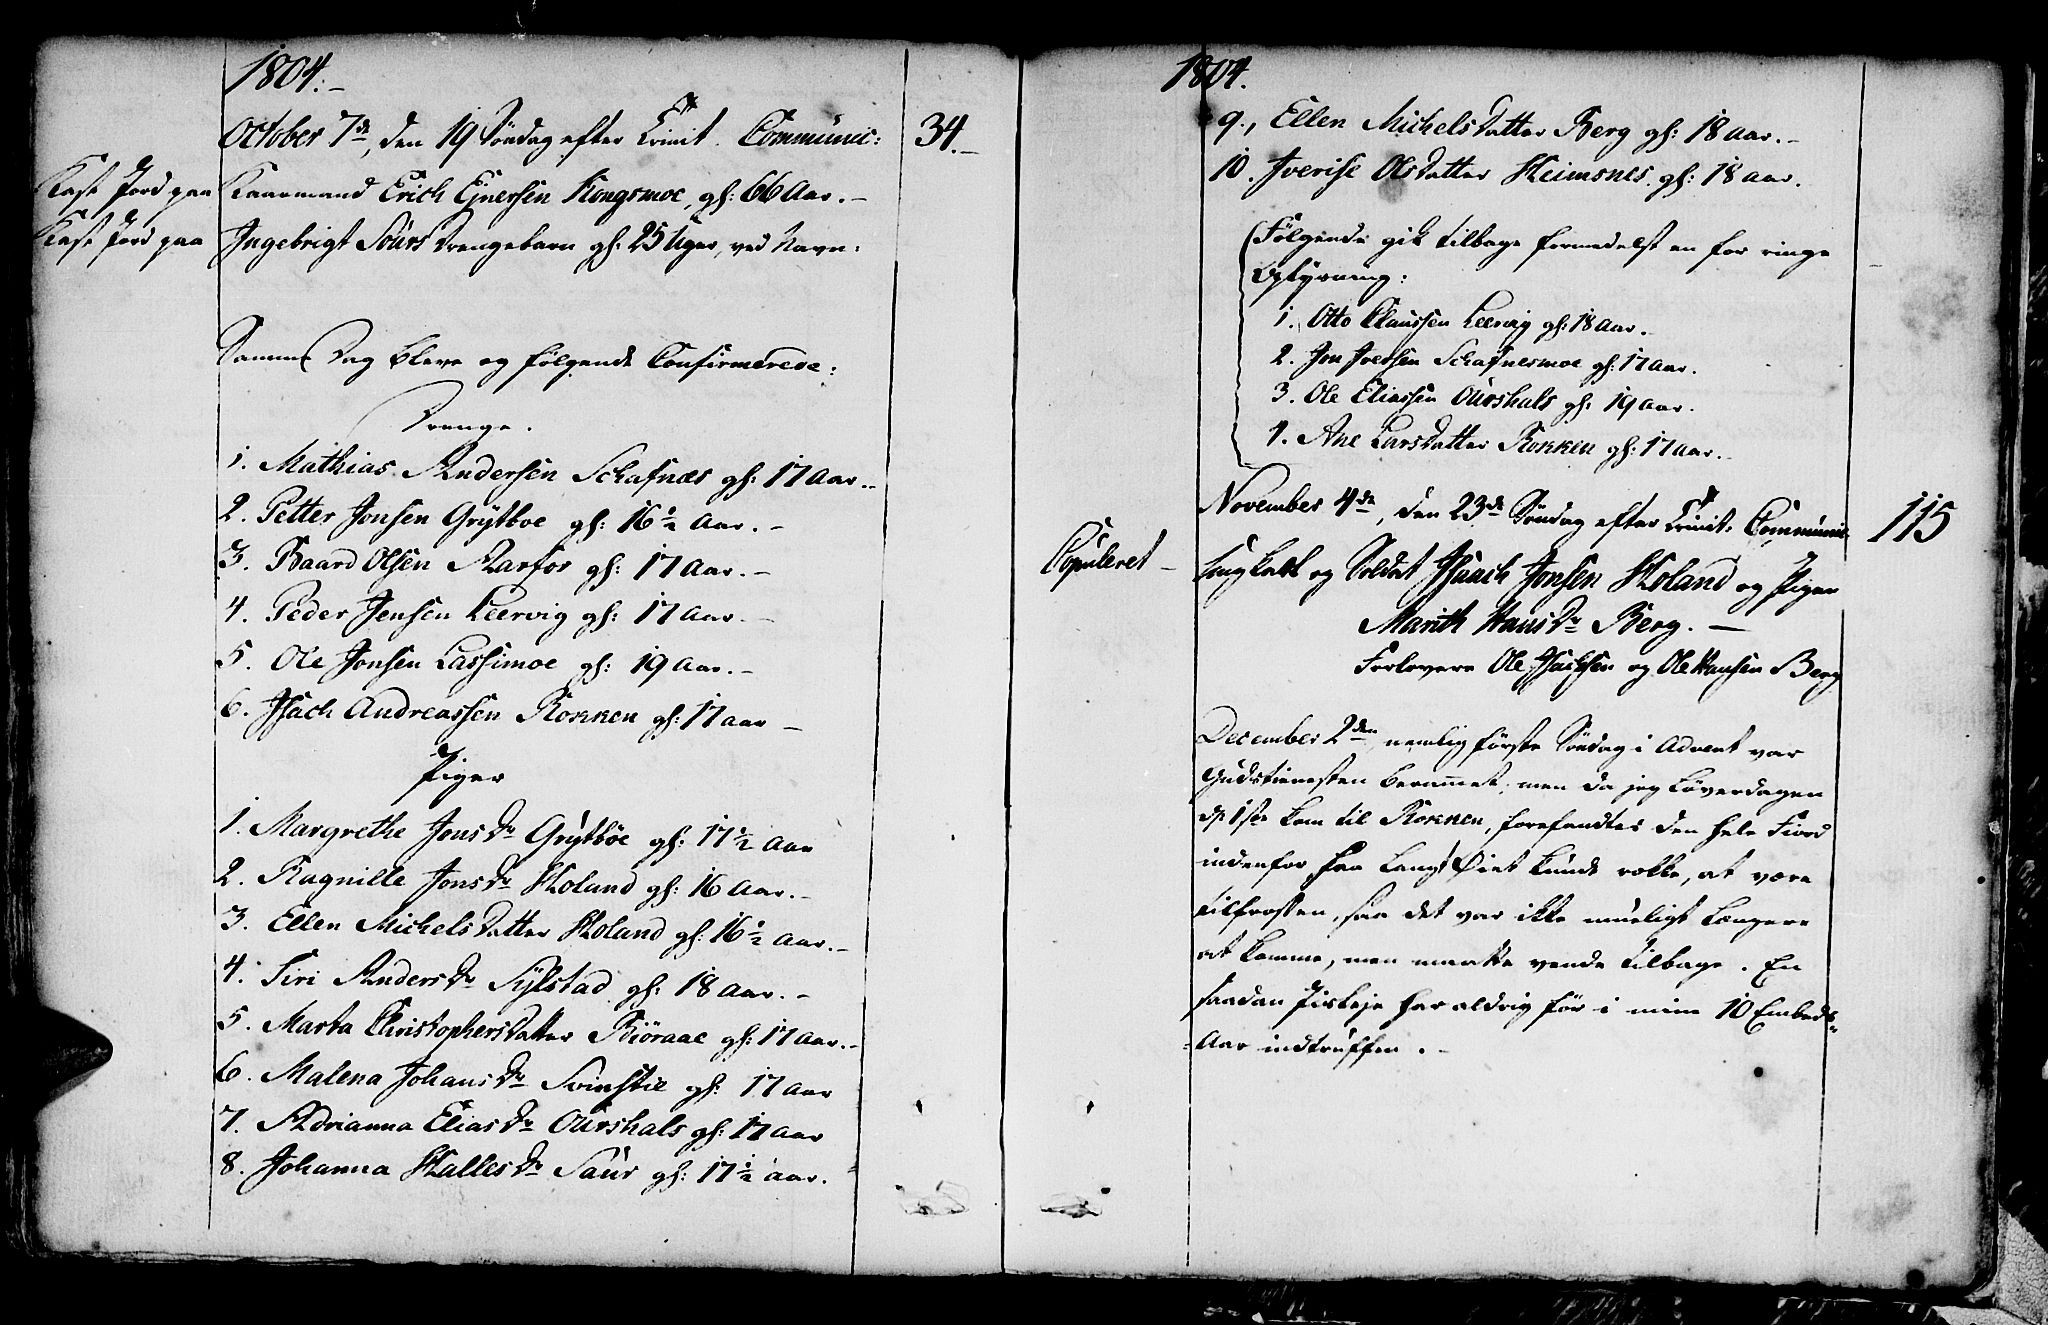 1804.-
October 7de, den 19 Søndag efter Trinit. Communic: 34.-
Kast Jord paa Kaarmand Erich Ejnersen Kongsmoe, gl: 66 Aar.-
Kast Jord paa Ingebrigt Saurs Drengebarn gl: 25 Uger, ved Navn:
Samme Dag bleve og følgende Confirmerede:
Drenge.
1. Mathias Andersen Schafnæs gl: 17 Aar..
2. Petter Jonsen Grytboe gl: 16½ Aar.-
3. Baard Olsen Aarfor gl: 17 Aar.-
4. Peder Jensen Leervig gl: 17 Aar.-
5. Ole Jonsen Lassimoe gl: 19 Aar.-
6. Isach Andreassen Kokken gl: 17 Aar-
Piger
1. Margrethe Jons Dr Grytböe gl: 17½ Aar
2. Ragnille Jons Dr Høland gl: 16 Aar.-
3. Ellen Michels Datter Høland gl: 16½ Aar.-
4. Siri Anders Dr Sylstad gl: 18 Aar.-
5. Marta Christophers Datter Biöraae gl: 17 Aar.-
6. Malena Johans Dr Svinstie gl: 17 Aar
7. Adrianna Elias Dr Ourshals gl: 17 Aar
8. Johanna Halles Dr Saur gl: 17½ Aar.
1804.
9., Ellen Michels Datter Berg gl: 18 Aar.-
10. Iverise Ols Datter Heimsnes gl: 18 Aar.
Følgende gik tilbage formedelst en for ringe
Oplysning:
1. Otto Claussen Leervig gl: 18 Aar.
2. Jon Iversen Schafnesmoe gl: 17 Aar.
3. Ole Eliassen Ourshals gl: 19 Aar.
1. Ane Lars Datter Kokken gl: 17 Aar.
November 4de, den 23de Søndag efter Trinit: Communic 115
Copuleret - Ungkarl og Soldat Isaach Jonsen Høland og Pigen
Marith Hans Dr Berg.-
Forlovere Ole Isachsen og Ole Hansen Berg
December 2den, nemlig første Søndag i Advent var
Gudstienesten berammet, men da jeg Løverdagen
d. 1ste kom til Kokken, forefandtes den hele Fiord
indenfor, saa langt Øiet kunde række, at være
tilfrossen, saa det var ikke mueligt længere
at komme, men maatte vende tilbage. En
saadan Isleje har aldrig før i mine 10 Embeds-
Aar indtruffen.-